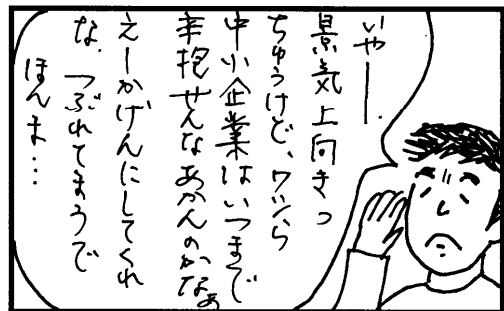 いやー、
景気上向きっ
ちゅうけど、ワシら
中小企業はいつまで
辛抱せんなあかんのかなぁ
えーかげんにしてくれ
な、つぶれてまうで
ほんま…